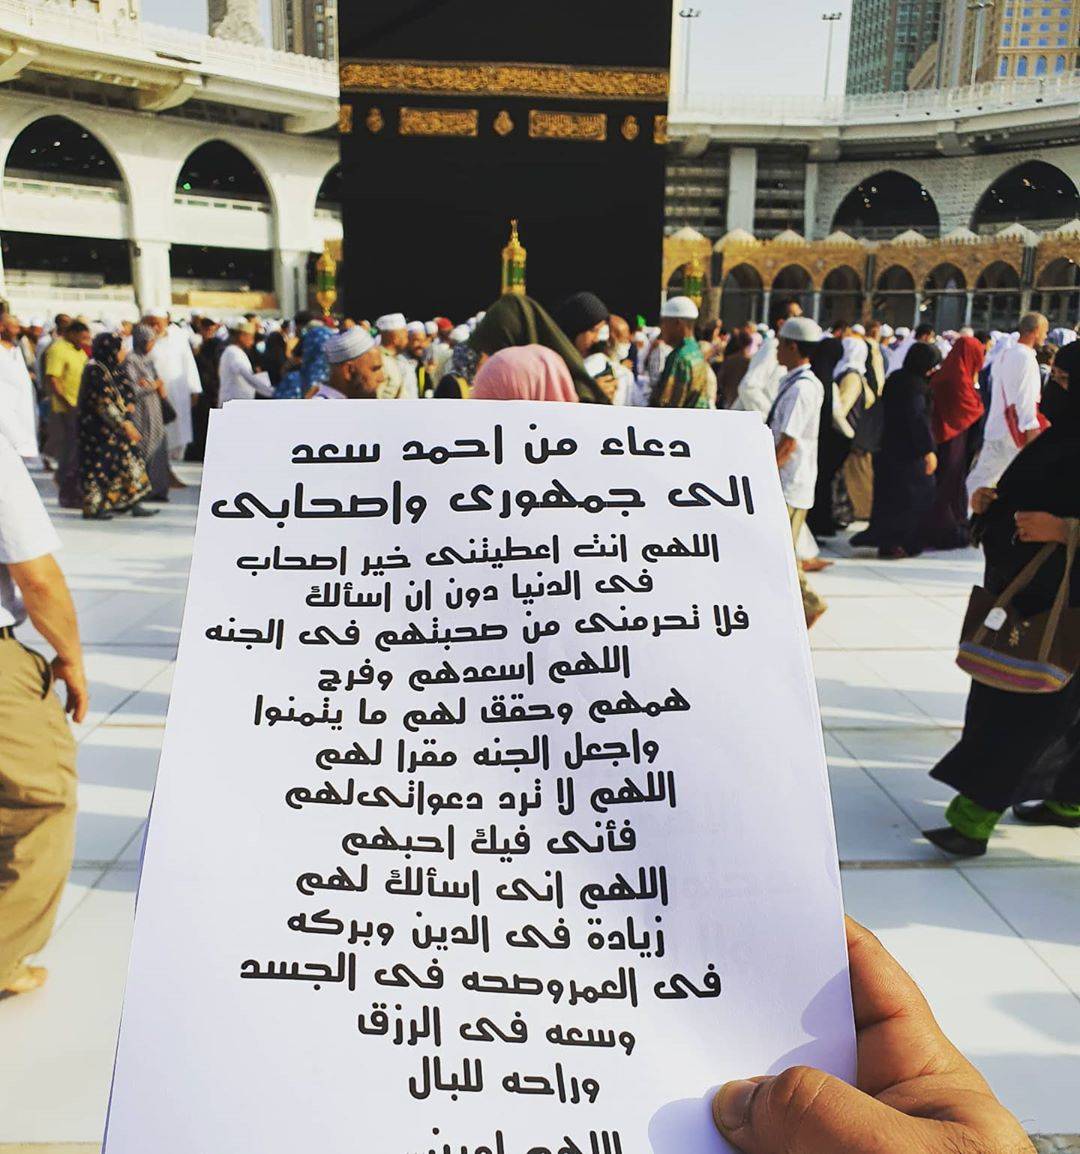 دعاء من احمد سعد
إلى جمهورى واصحابى
اللهم انت اعطيتنى خير اصحاب
فى الدنيا دون ان اسألك
فلا تحرمنى من صحبتهم فى الجنه
اللهم اسعدهم وفرج
همهم وحقق لهم ما يتمنوا
واجعل الجنه مقرا لهم
اللهم لا ترد دعواتى لهم
فأنى فيك احبهم
اللهم انى اسألك لهم
زيادة فى الدين وبركه
فى العمر وصحه فى الجسد
وسعه فى الرزق
وراحه للبال
اللهم